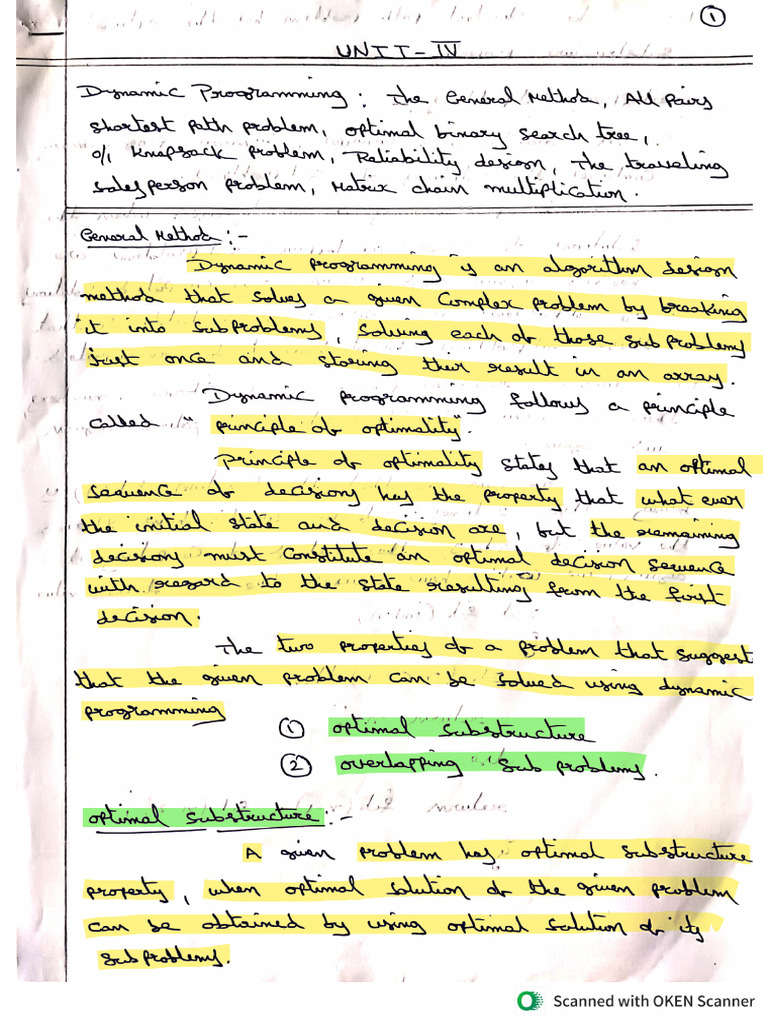 1
UNIT-IV
Dynamic Programming: The General Method, All pairs
shortest path problem, optimal binary search tree,
0/1 knapsack problem, Reliability design, The traveling
salesperson problem, Matrix chain multiplication.
General Method:-
Dynamic programming is an algorithm design
method that solves a given complex problem by breaking
it into subproblems, solving each of those subproblems
just once and storing their result in an array.
Dynamic programming follows a principle
called "principle of optimality".
Principle of optimality states that an optimal
sequence of decisions has the property that what ever
the initial state and decision are, but the remaining
decisions must constitute an optimal decision sequence
with regard to the state resulting from the first
decision.
The two properties of a problem that suggest
that the given problem can be solved using dynamic
programming
① optimal substructure
② overlapping sub problems.
optimal substructure:-
A given problem has optimal substructure
property, when optimal solution of the given problem
can be obtained by using optimal solution of its
subproblems.
Scanned with OKEN Scanner